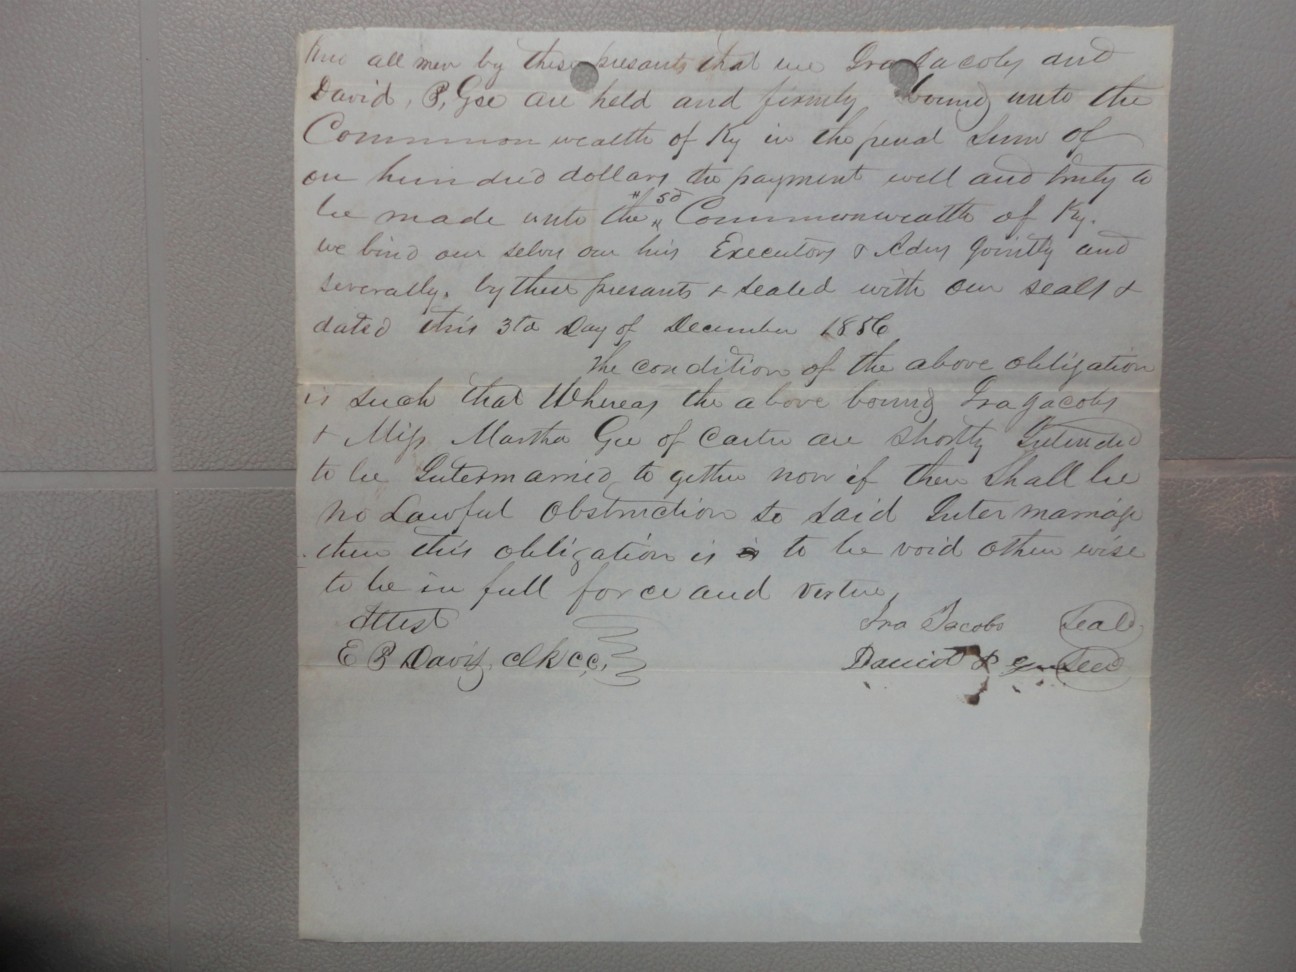 all men by these presants that we Ira Jacobs and
David, P, Gee are held and firmly bound unto the
Common wealth of Ky in the penal Sum of
on hundred dollars the payment well and truly to
be made unto the sd Commonwealth of Ky.
we bind our selvs our hirs Executors & Adms Jointly and
severally. by these presants & sealed with our seals &
dated this 3td Day of December 1856
The condition of the above obligation
is such that Whereas the above bound Ira Jacobs
& Miss Martha Gee of Carter are shortly Intended
to be Intermarried to gether now if there shall be
no Lawful Obstruction to said Inter marriage
then this obligation is is to be void other wise
to be in full force and vertue
Attest Ira Jacobs Seal
E P Davis, clk cc, David P Gee Seal